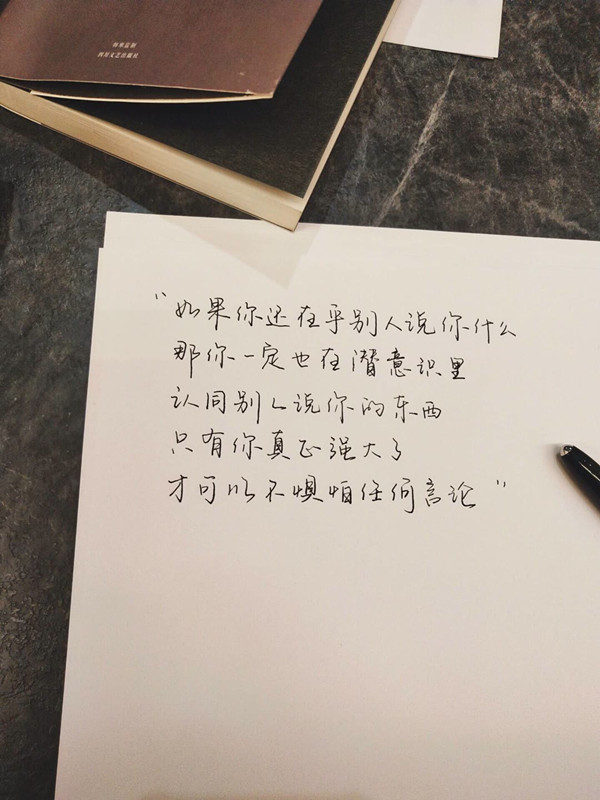 四川文艺出版社
“如果你还在乎别人说你什么
那你一定也在潜意识里
认同别人说你的东西
只有你真正强大了
才可以不惧怕任何言论”